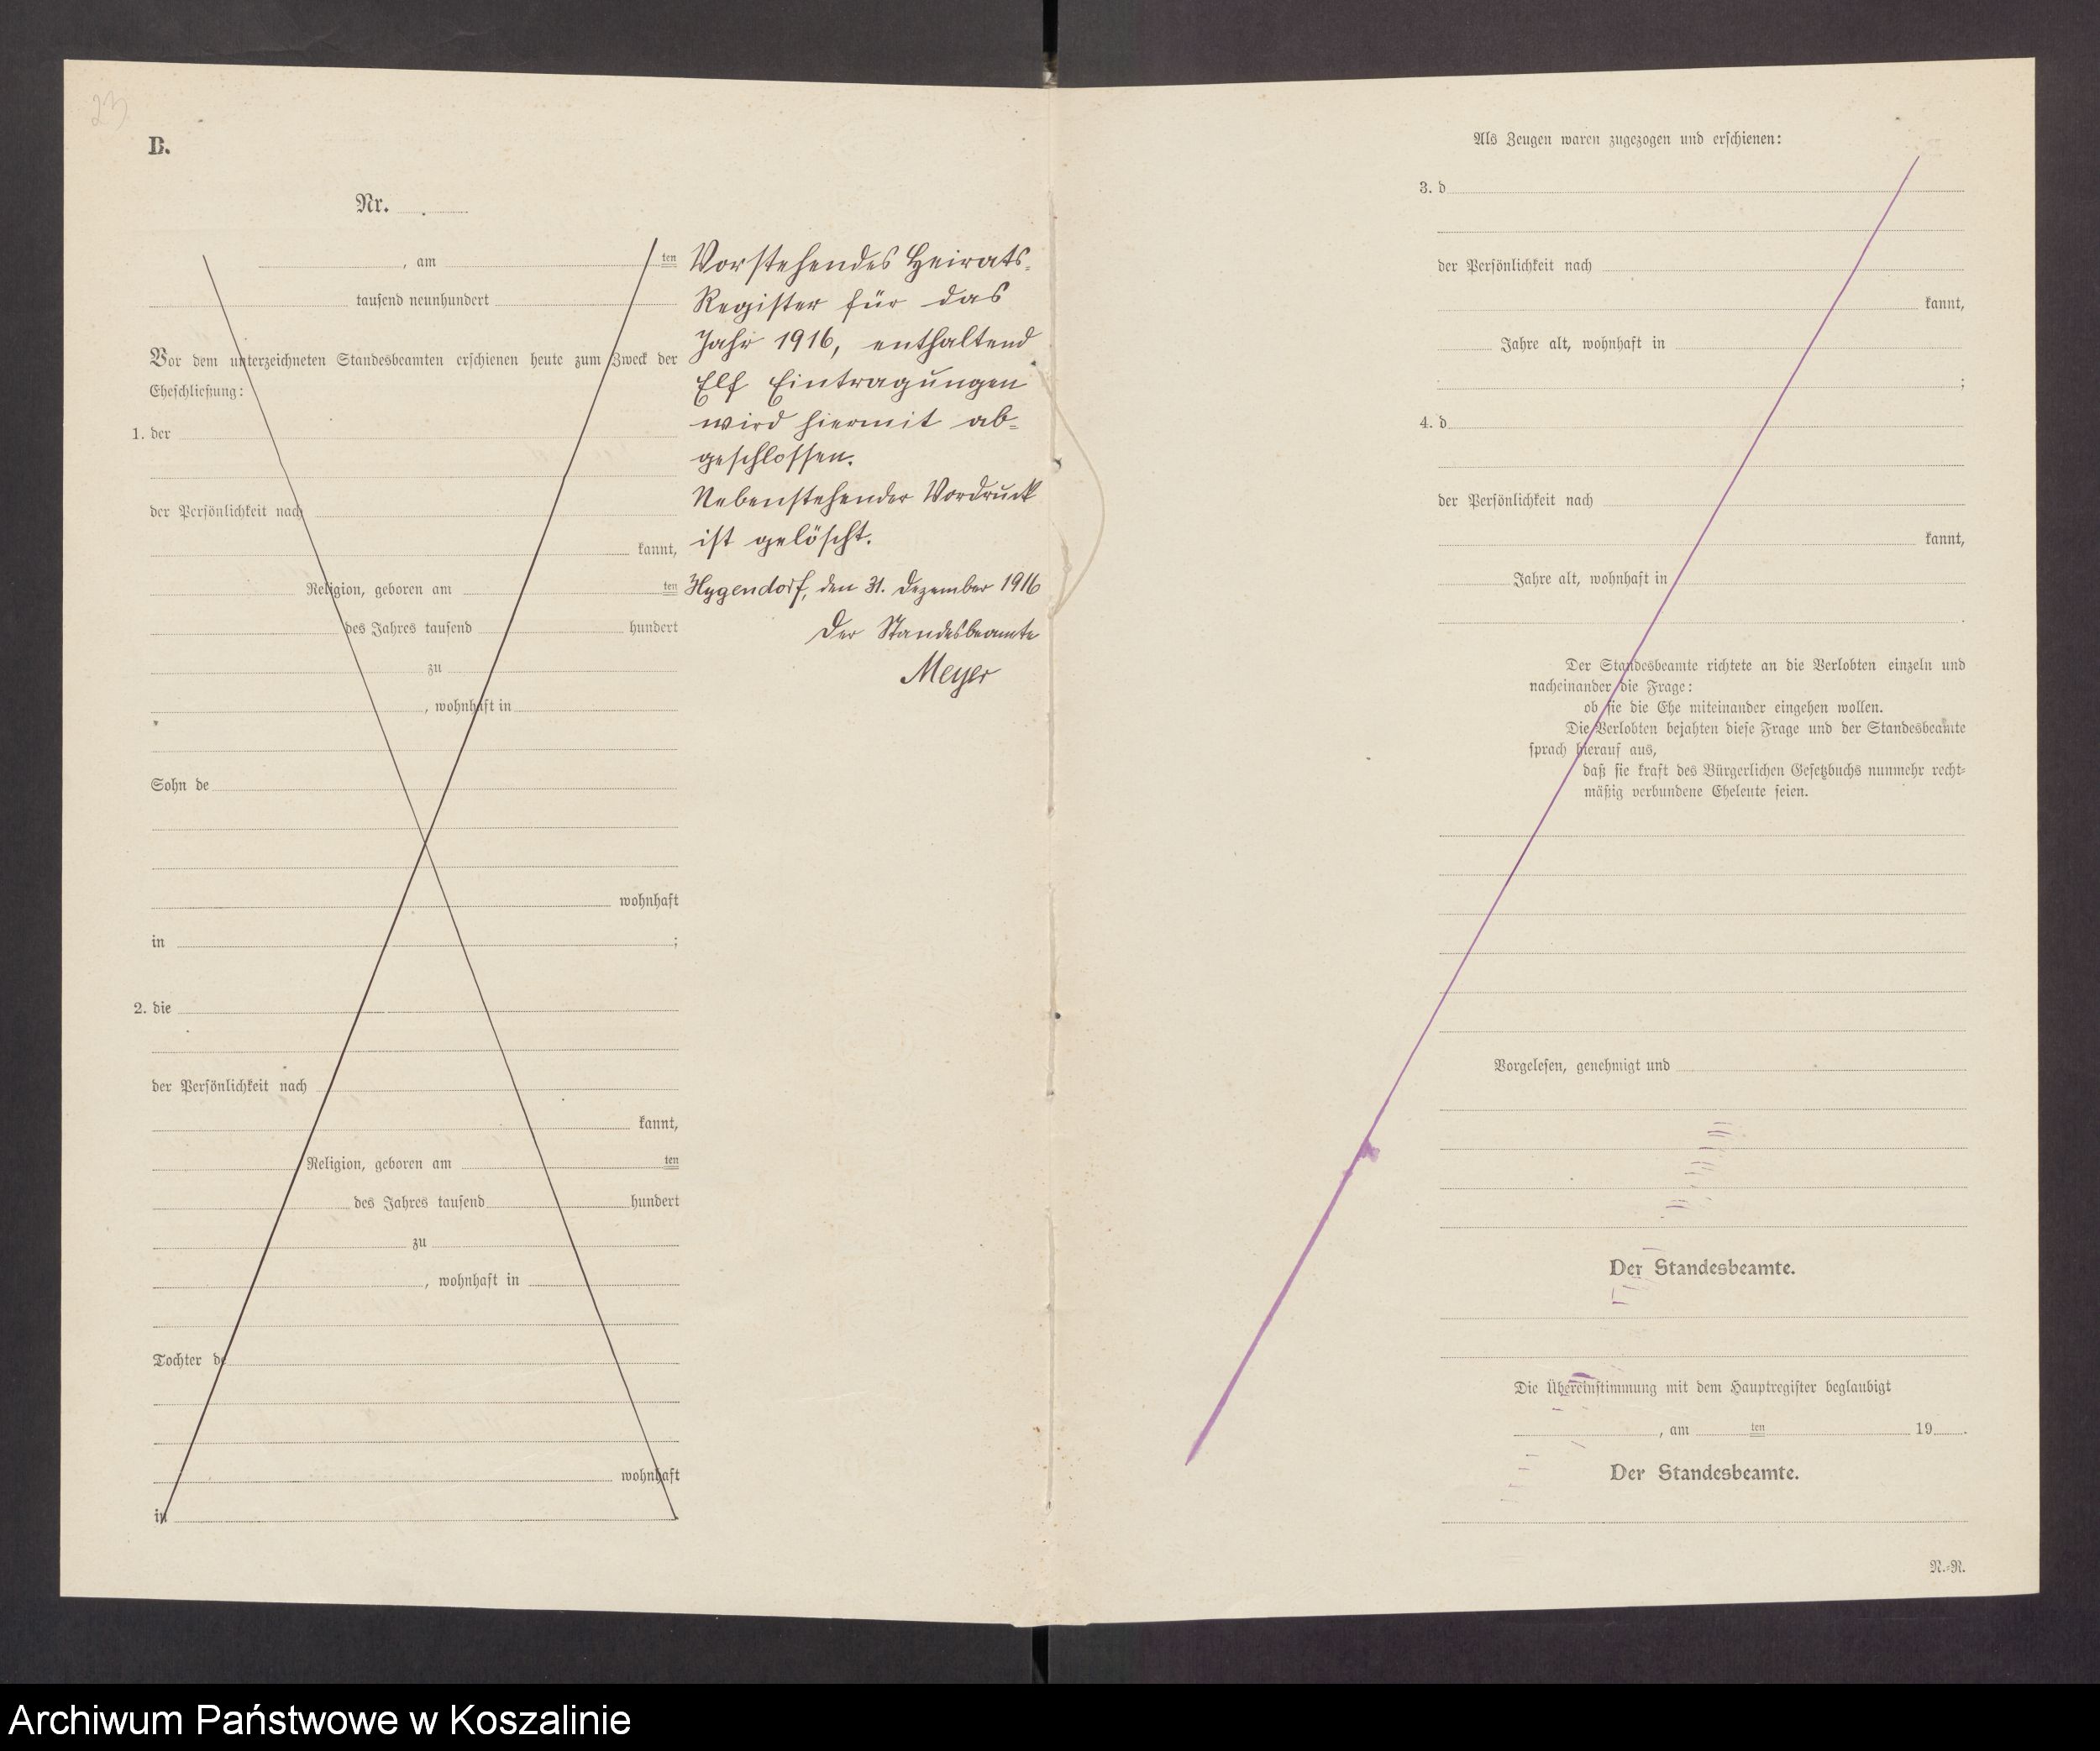 23
B.
Nr.
, am ten
tausend neunhundert
Vor dem unterzeichneten Standesbeamten erschienen heute zum Zweck der
Eheschließung:
1. der
der Persönlichkeit nach
kannt,
Religion, geboren am ten
des Jahres tausend hundert
zu
, wohnhaft in
Sohn de
wohnhaft
in ;
2. die
der Persönlichkeit nach
kannt,
Religion, geboren am ten
des Jahres tausend hundert
zu
, wohnhaft in
Tochter de
wohnhaft
in
Vorstehendes Heirats-
Register für das
Jahr 1916, enthaltend
Elf Eintragungen
wird hiermit ab-
geschlossen.
Nebenstehender Vordruck
ist gelöscht.
den 31. Dezember 1916
Der Standesbeamte
Meyer
Als Zeugen waren zugezogen und erschienen:
3. d
der Persönlichkeit nach
kannt,
Jahre alt, wohnhaft in
;
4. d
der Persönlichkeit nach
kannt,
Jahre alt, wohnhaft in
.
Der Standesbeamte richtete an die Verlobten einzeln und
nacheinander die Frage:
ob sie die Ehe miteinander eingehen wollen.
Die Verlobten bejahten diese Frage und der Standesbeamte
sprach hierauf aus,
daß sie kraft des Bürgerlichen Gesetzbuchs nunmehr recht-
mäßig verbundene Eheleute seien.
Vorgelesen, genehmigt und
Der Standesbeamte.
Die Übereinstimmung mit dem Hauptregister beglaubigt
, am ten 19 .
Der Standesbeamte.
N.-R.
Archiwum Państwowe w Koszalinie